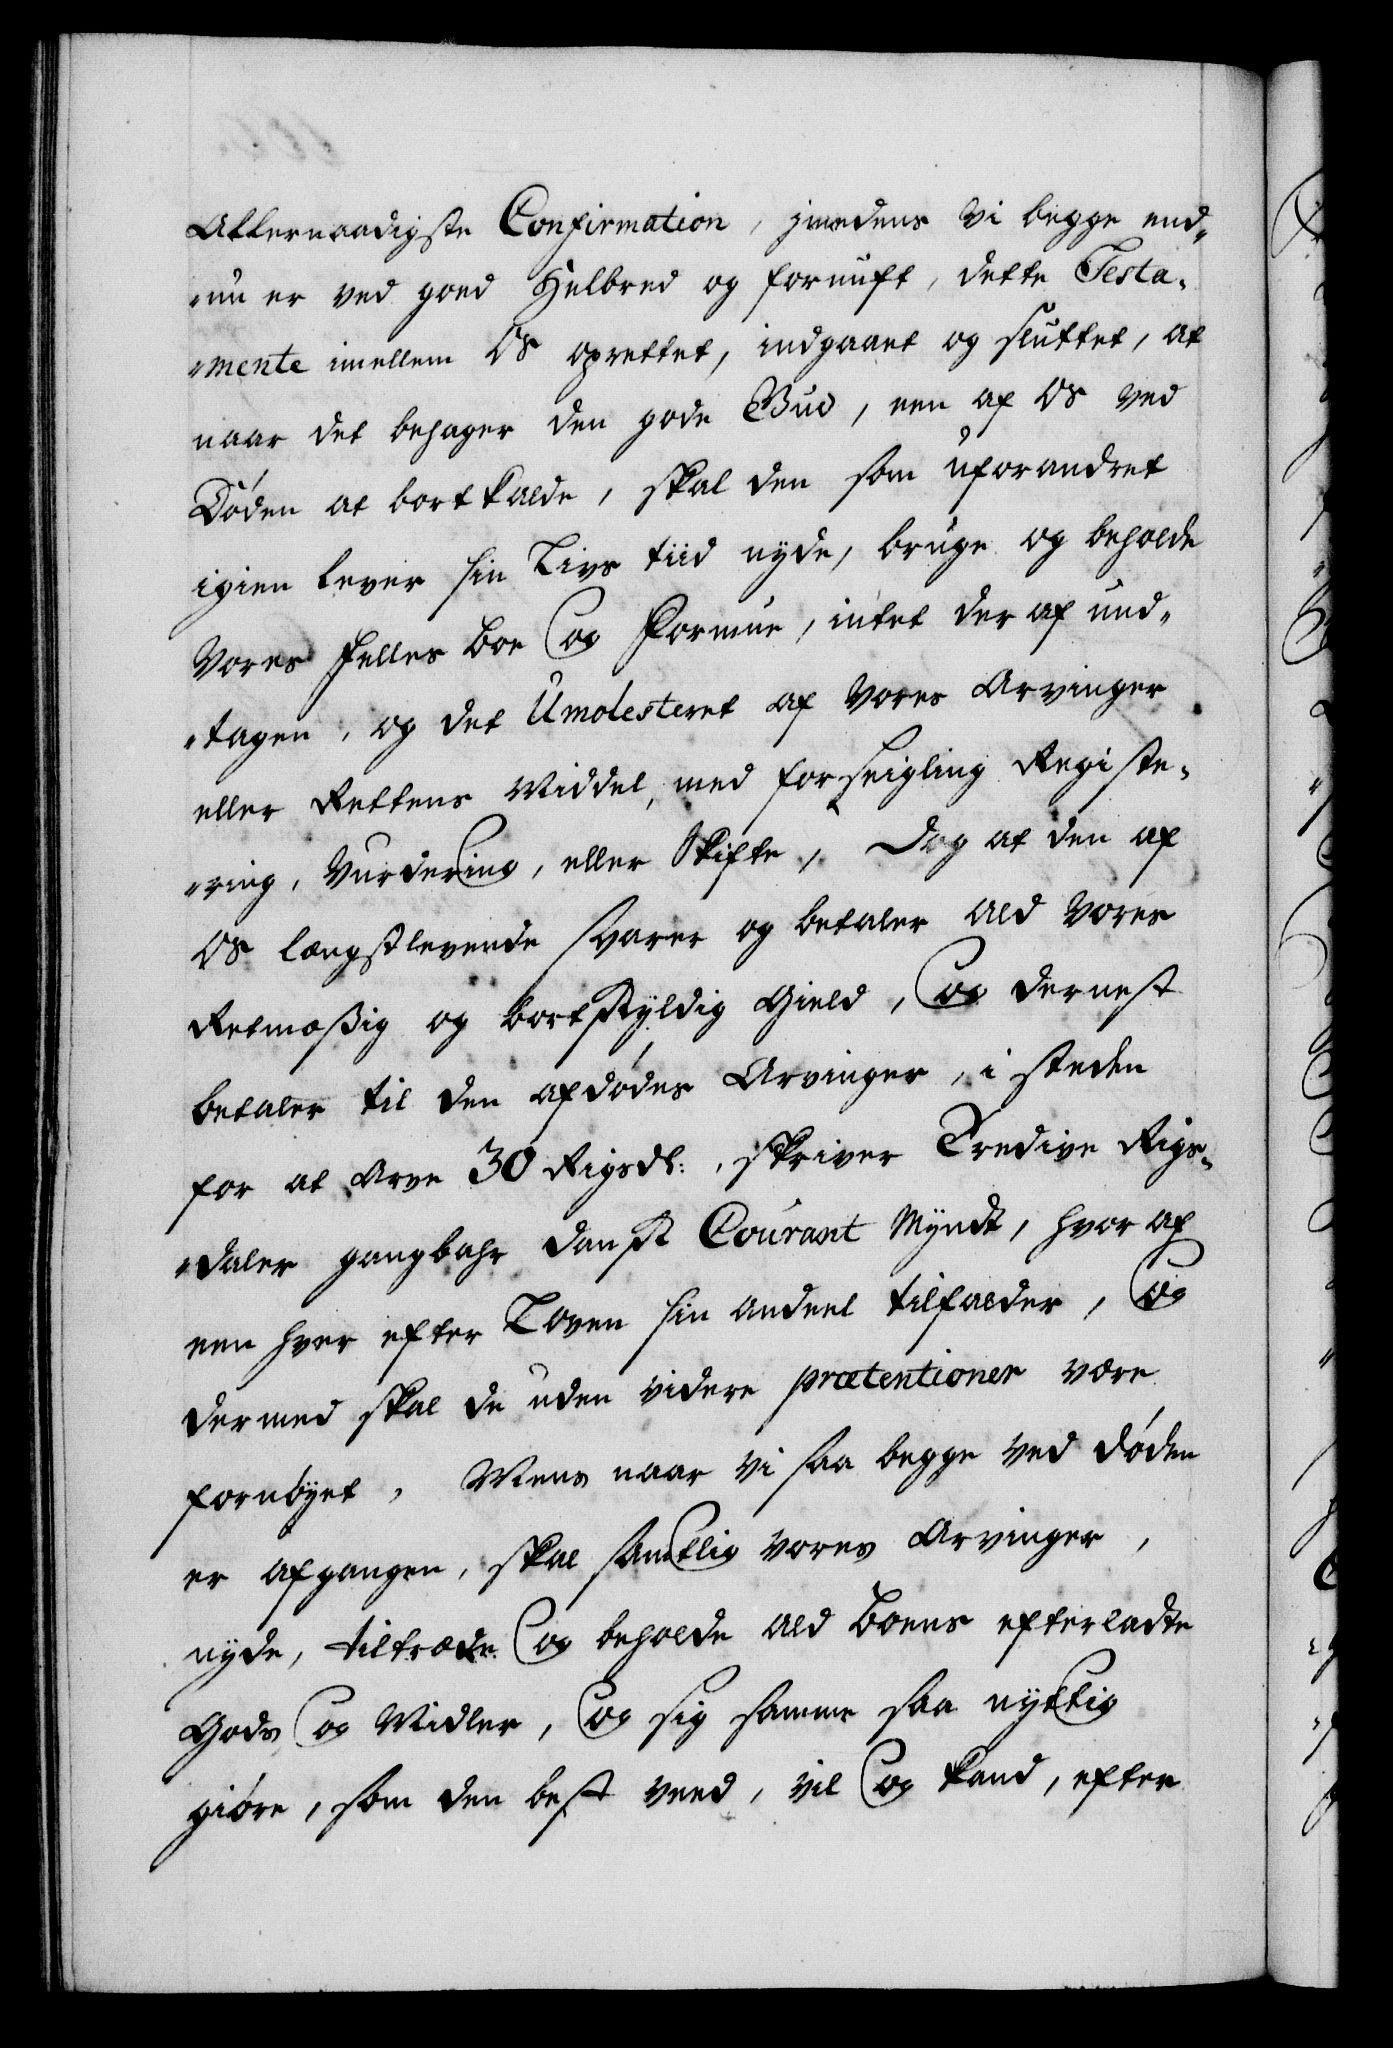 Allernaadigste Confirmation, jmedens vi begge end„
„nu er ved goed Helbred og fornuft, dette Testa„
„mente imellem Os oprettet, indgaaet og sluttet, at
naar det behager den gode Gud, een af Os ved
Døden at bortkalde, skal den som uforandret
igien lever sin Livs tiid nyde, bruge og beholde
Vores Felles Boe Og Formue, intet der af und„
„tagen, og det Umolesteret af Vores Arvinger
eller Rettens Middel, med forseigling Registe„
„ring, Vurdering, eller Skifte, Dog at den af
Os længstlevende svarer og betaler Ald Vores
Retmæssig og bortskyldig Gield, Og dernest
betaler til den afdødes Arvinger, i steden
for at Arve 30 Rigsdl:, skriver Tredive Rigs„
„daler gangbahr Dansk Courant Myndt, hvor af
een hver efter Loven sin andeel tilfalder, Og
dermed skal de uden videre prætentioner være
fornøyet, Mens naar vi saa begge ved døden
er afgangen, skal samtlig vores Arvinger,
nyde, tiltræde Og beholde Ald Boens efterladte
Gods Og Midler, Og sig samme saa nyttig
giøre, som den best veed, vil Og kand, efter